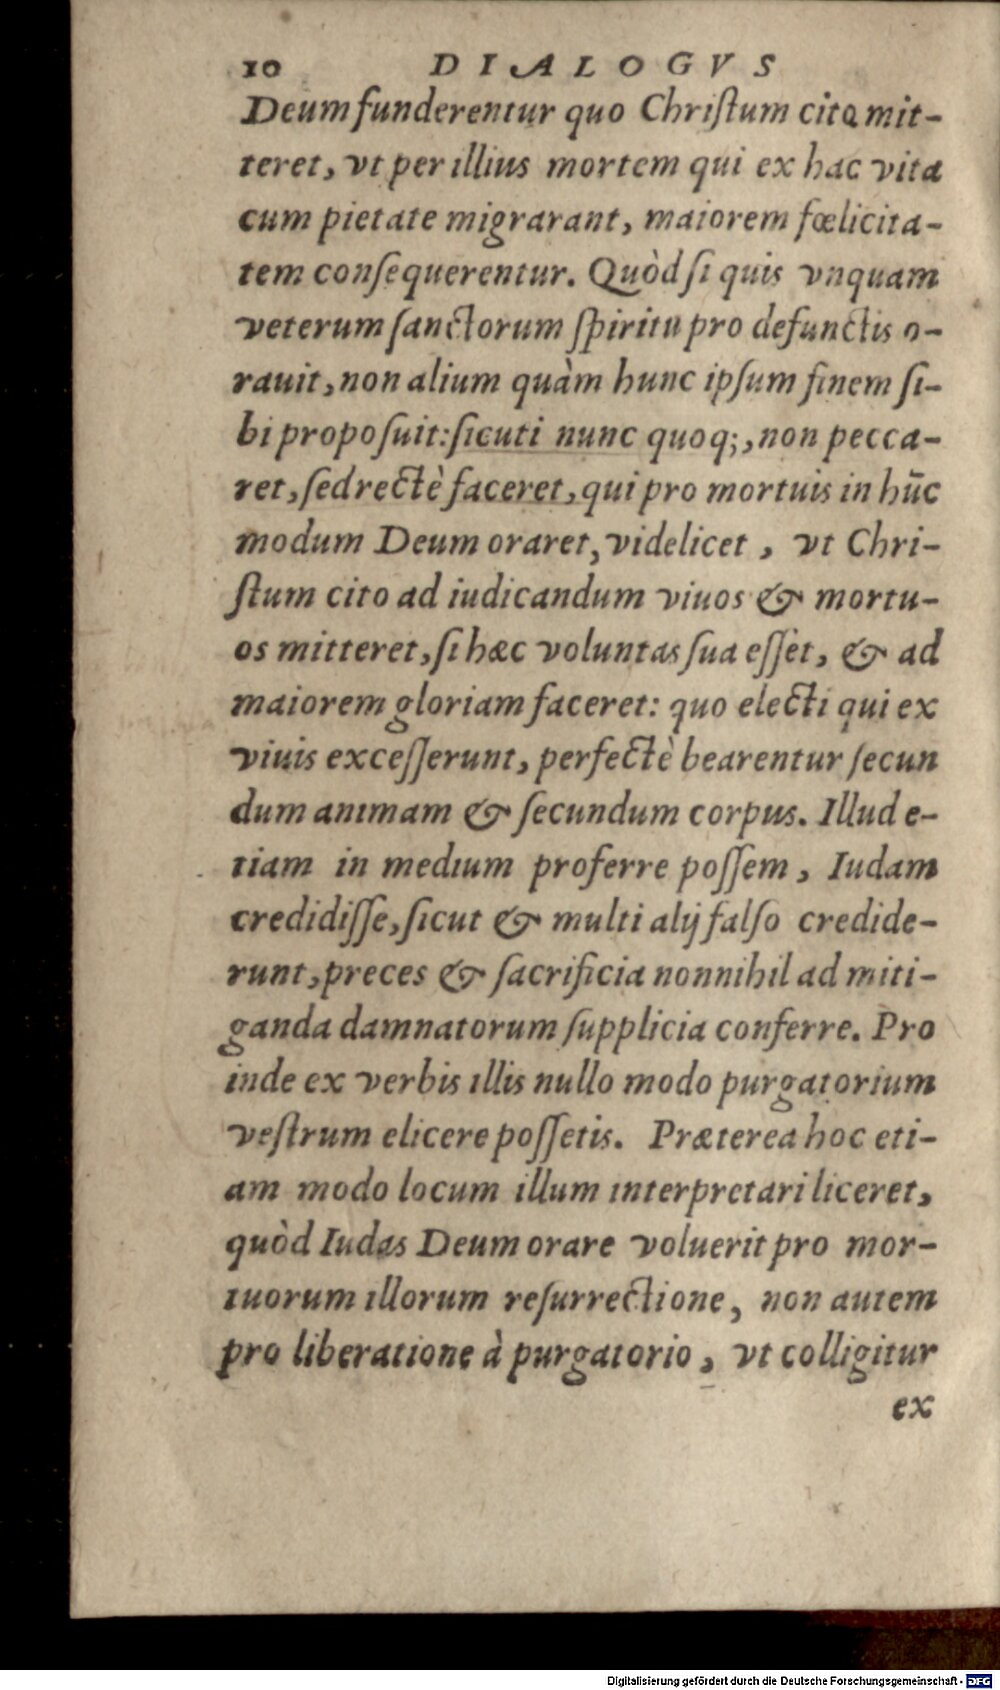 10 DIALOGVS
Deum funderentur quo Christum cito mit-
teret, vt per illius mortem qui ex hac vita
cum pietate migrarant, maiorem fœlicita-
tem consequerentur. Quòd si quis vnquam
veterum sanctorum spiritu pro defunctis o-
rauit, non alium quàm hunc ipsum finem si-
bi proposuit: sicuti nunc quoq;, non pecca-
ret, sed rectè faceret, qui pro mortuis in hūc
modum Deum oraret, videlicet, vt Chri-
stum cito ad iudicandum viuos & mortu-
os mitteret, si hæc voluntas sua essèt, & ad
maiorem gloriam faceret: quo electi qui ex
viuis excesserunt, perfectè bearentur secun
dum animam & secundum corpus. Illud e-
tiam in medium proferre possem, Iudam
credidisse, sicut & multi alij falso credide-
runt, preces & sacrificia nonnihil ad miti-
ganda damnatorum supplicia conferre. Pro
inde ex verbis illis nullo modo purgatorium
vestrum elicere possetis. Præterea hoc eti-
am modo locum illum interpretari liceret,
quòd Iudas Deum orare voluerit pro mor-
tuorum illorum resurrectione, non autem
pro liberatione à purgatorio, vt colligitur
ex
Digitalisierung gefördert durch die Deutsche Forschungsgemeinschaft - DFG